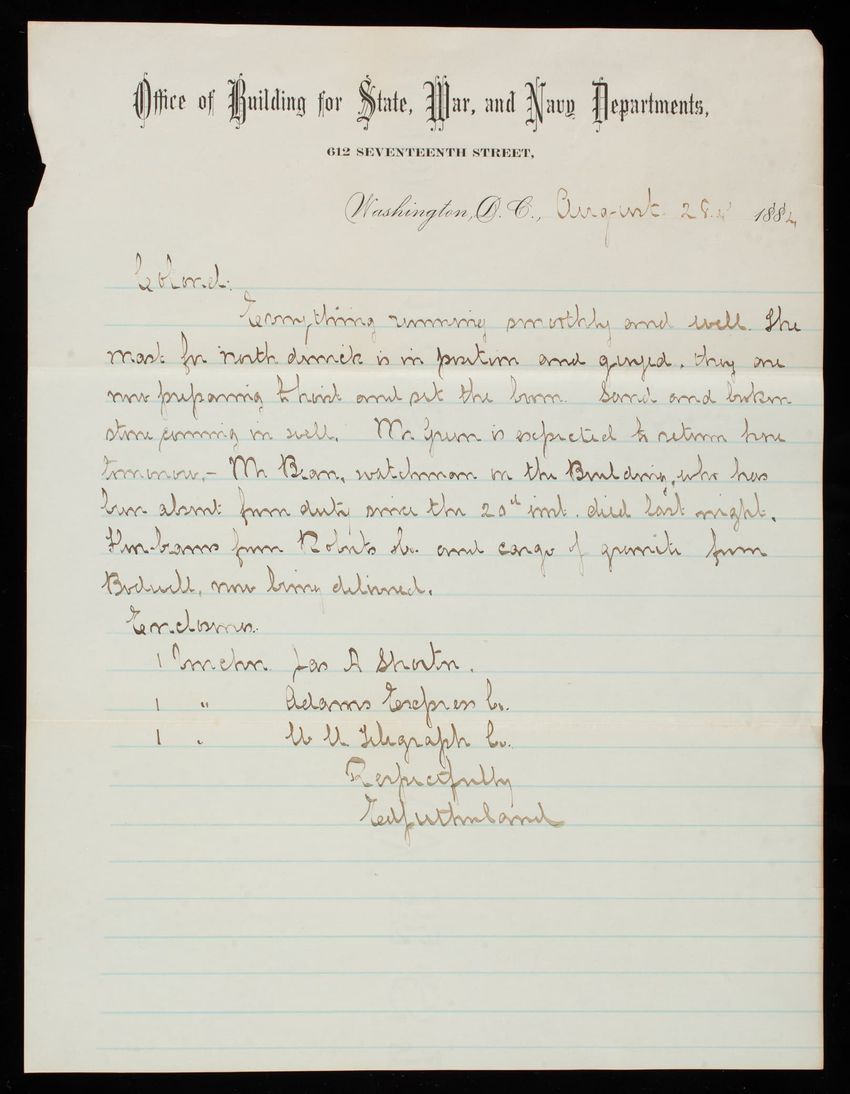 Office of Building for State, War, and Navy Departments,
612 SEVENTEENTH STREET,
Washington, D. C., August 28. 1884
Colonel:
Everything running smoothly and well. The
mast for north derrick is in position and guyed, they are
now preparing to hoist and set the boom. Sand and broken
stone coming in well. Mr Green is expected to return here
tomorrow. - Mr Bean, watchman on the Building, who has
been absent from duty since the 20th inst. died last night.
Iron-beams from Roberts Co. and cargo of granite from
Bodwell, now being delivered.
Enclosures.
1 Voucher Jas A Shorter.
1 " Adams Express Co.
1 " W U. Telegraph Co.
Respectfully